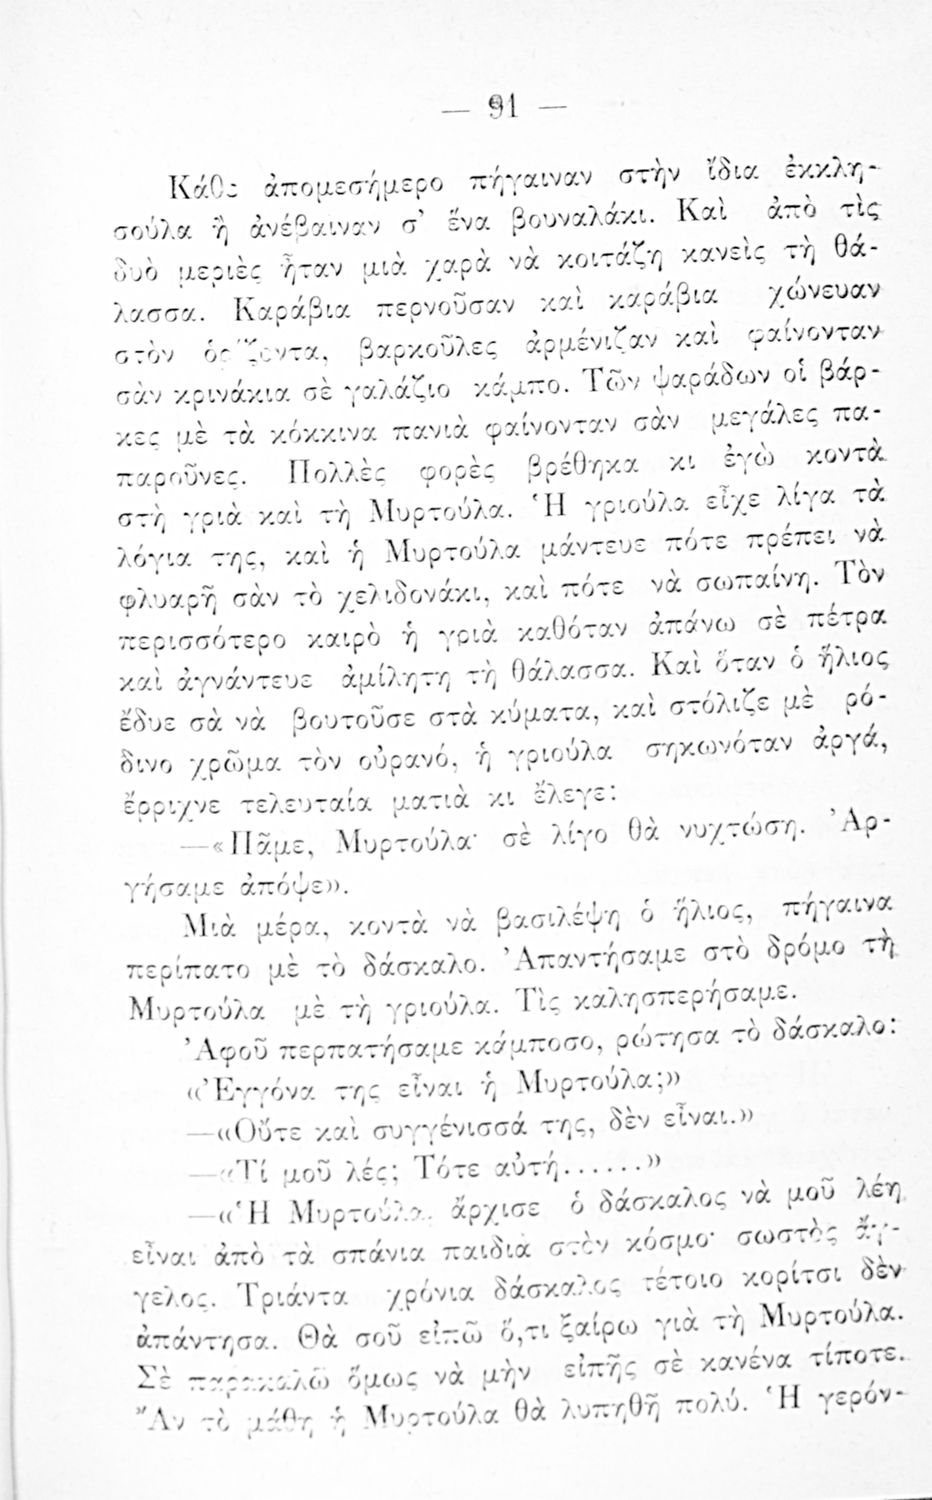 — 91 —
Κάθε ἀπομεσήμερο πήγαιναν στὴν ἴδια ἐκκλη-
σούλα ἢ ἀνέβαιναν σ᾽ ἕνα βουναλάκι. Καὶ ἀπὸ τὶς
δυὸ μεριὲς ἦταν μιὰ χαρὰ νὰ κοιτάζῃ κανεὶς τὴ θά-
λασσα. Καράβια περνοῦσαν καὶ καράβια χώνευαν
στὸν ὁρίζοντα, βαρκοῦλες ἀρμένιζαν καὶ φαίνονταν
σὰν κρινάκια σὲ γαλάζιο κάμπο. Τῶν ψαράδων οἱ βάρ-
κες μὲ τὰ κόκκινα πανιὰ φαίνονταν σὰν μεγάλες πα-
παροῦνες. Πολλὲς φορὲς βρέθηκα κι ἐγὼ κοντὰ
στὴ γριὰ καὶ τὴ Μυρτούλα. Ἡ γριούλα εἶχε λίγα τὰ
λόγια της, καὶ ἡ Μυρτούλα μάντευε πότε πρέπει νὰ
φλυαρῆ σὰν τὸ χελιδονάκι, καὶ πότε νὰ σωπαίνη. Τὸν
περισσότερο καιρὸ ἡ γριὰ καθόταν ἀπάνω σὲ πέτρα
καὶ ἀγνάντευε ἀμίλητη τὴ θάλασσα. Καὶ ὅταν ὁ ἥλιος
ἔδυε σὰ νὰ βουτοῦσε στὰ κύματα, καὶ στόλιζε μὲ ρό-
δινο χρῶμα τὸν οὐρανό, ἡ γριούλα σηκωνόταν ἀργά,
ἔρριχνε τελευταία ματιὰ κι ἔλεγε:
—«Πᾶμε, Μυρτούλα· σὲ λίγο θὰ νυχτώση. Ἀρ-
γήσαμε ἀπόψε».
Μιὰ μέρα, κοντὰ νὰ βασιλέψη ὁ ἥλιος, πήγαινα
περίπατο μὲ τὸ δάσκαλο. Ἀπαντήσαμε στὸ δρόμο τὴ
Μυρτούλα μὲ τὴ γριούλα. Τὶς καλησπερήσαμε.
Ἀφοῦ περπατήσαμε κάμποσο, ρώτησα τὸ δάσκαλο:
«Ἐγγόνα της εἶναι ἡ Μυρτούλα;»
—«Οὔτε καὶ συγγένισσά της, δὲν εἶναι.»
—«Τί μοῦ λές; Τότε αὐτή......»
—«Ἡ Μυρτούλα, ἄρχισε ὁ δάσκαλος νὰ μοῦ λέη,
εἶναι ἀπὸ τὰ σπάνια παιδιὰ στὸν κόσμο· σωστὸς ἄγ-
γελος. Τριάντα χρόνια δάσκαλος τέτοιο κορίτσι δὲν
ἀπάντησα. Θὰ σοῦ εἰπῶ ὅ,τι ξαίρω γιὰ τὴ Μυρτούλα.
Σὲ παρακαλῶ ὅμως νὰ μὴν εἰπῆς σὲ κανένα τίποτε.
Ἂν τὸ μάθη ἡ Μυρτούλα θὰ λυπηθῆ πολύ. Ἡ γερόν-